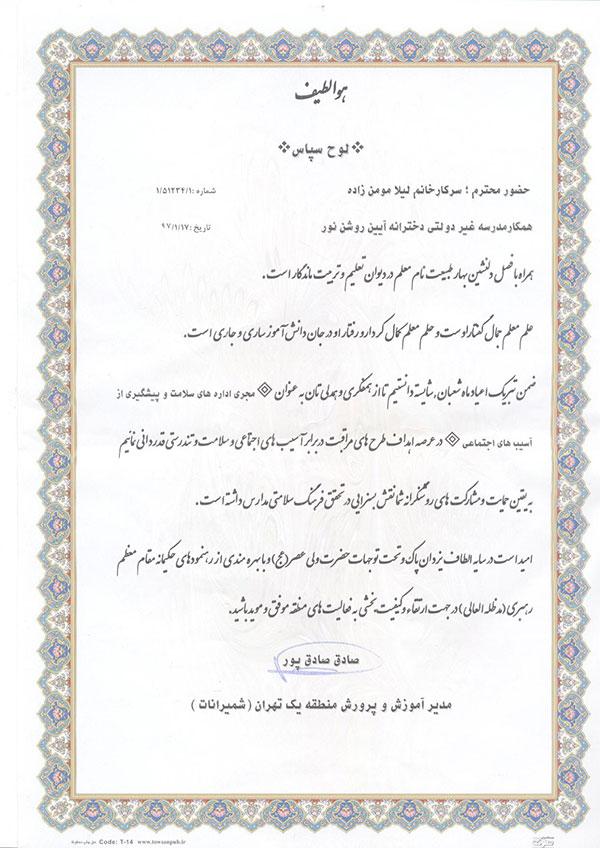 هوالطیف
لوح سپاس
حضور محترم ؛ سرکارخانم لیلا مومن زاده
شماره :۱/۵۱۲۳۴/۱
همکارمدرسه غیر دولتی دخترانه آیین روشن نور
تاریخ :۹۷/۱/۱۷
همراه با فصل دلنشین بهار طبیعت نام معلم در دیوان تعلیم و تربیت ماندگار است.
علم معلم جمال گفتار اوست و حلم معلم کمال کردار و رفتار او در جان دانش آموز ساری و جاری است.
ضمن تبریک اعیاد ماه شعبان, شایسته دانستیم تا از همفکری و همدلی تان به عنوان مجری اداره های سلامت و پیشگیری از
آسیب های اجتماعی در عرصه اهداف طرح های مراقبت در برابر آسیب های اجتماعی و سلامت و تندرستی قدردانی نمائیم
به یقین حمایت و مشارکت های روشنگرانه شما نقش بسزایی در تحقق فرهنگ سلامتی مدارس داشته است.
امید است در سایه الطاف یزدان پاک و تحت توجهات حضرت ولی عصر (عج) و با بهره مندی از رهنمودهای حکیمانه مقام معظم
رهبری (مدظله العالی) در جهت ارتقاء و کیفیت بخشی به فعالیت های منطقه موفق و موید باشید.
صادق صادق پور
مدیر آموزش و پرورش منطقه یک تهران ( شمیرانات )
Code: T-14 www.towsanpub.ir